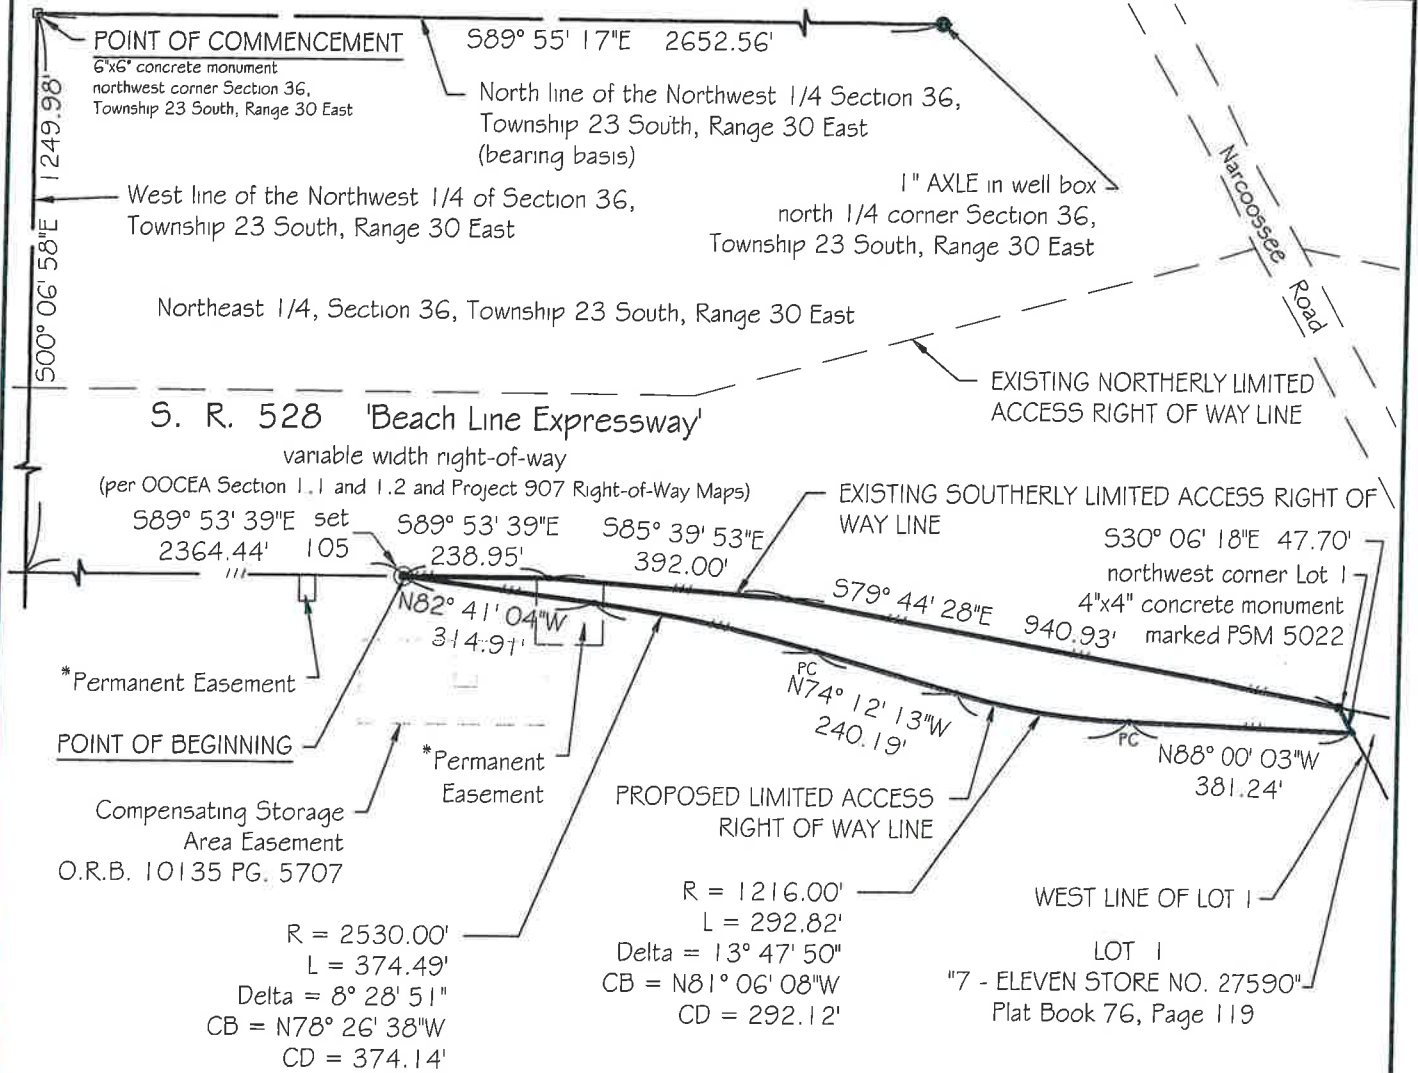 POINT OF COMMENCEMENT
6"x6" concrete monument
northwest corner Section 36,
Township 23 South, Range 30 East
S89° 55' 17"E 2652.56'
North line of the Northwest 1/4 Section 36,
Township 23 South, Range 30 East
(bearing basis)
S00° 06' 58"E 1249.98'
West line of the Northwest 1/4 of Section 36,
Township 23 South, Range 30 East
1" AXLE in well box
north 1/4 corner Section 36,
Township 23 South, Range 30 East
Narcoossee Road
Northeast 1/4, Section 36, Township 23 South, Range 30 East
EXISTING NORTHERLY LIMITED
ACCESS RIGHT OF WAY LINE
S. R. 528 'Beach Line Expressway'
variable width right-of-way
(per OOCEA Section 1.1 and 1.2 and Project 907 Right-of-Way Maps)
EXISTING SOUTHERLY LIMITED ACCESS RIGHT OF
WAY LINE
S89° 53' 39"E
2364.44'
set
105
S89° 53' 39"E
238.95'
S85° 39' 53"E
392.00'
S79° 44' 28"E 940.93'
S30° 06' 18"E 47.70'
northwest corner Lot 1
4"x4" concrete monument
marked PSM 5022
N82° 41' 04"W
314.91'
*Permanent Easement
PC
N74° 12' 13"W
240.19'
PC
N88° 00' 03"W
381.24'
POINT OF BEGINNING
*Permanent
Easement
Compensating Storage
Area Easement
O.R.B. 10135 PG. 5707
PROPOSED LIMITED ACCESS
RIGHT OF WAY LINE
R = 2530.00'
L = 374.49'
Delta = 8° 28' 51"
CB = N78° 26' 38"W
CD = 374.14'
R = 1216.00'
L = 292.82'
Delta = 13° 47' 50"
CB = N81° 06' 08"W
CD = 292.12'
WEST LINE OF LOT 1
LOT 1
"7 - ELEVEN STORE NO. 27590"
Plat Book 76, Page 119